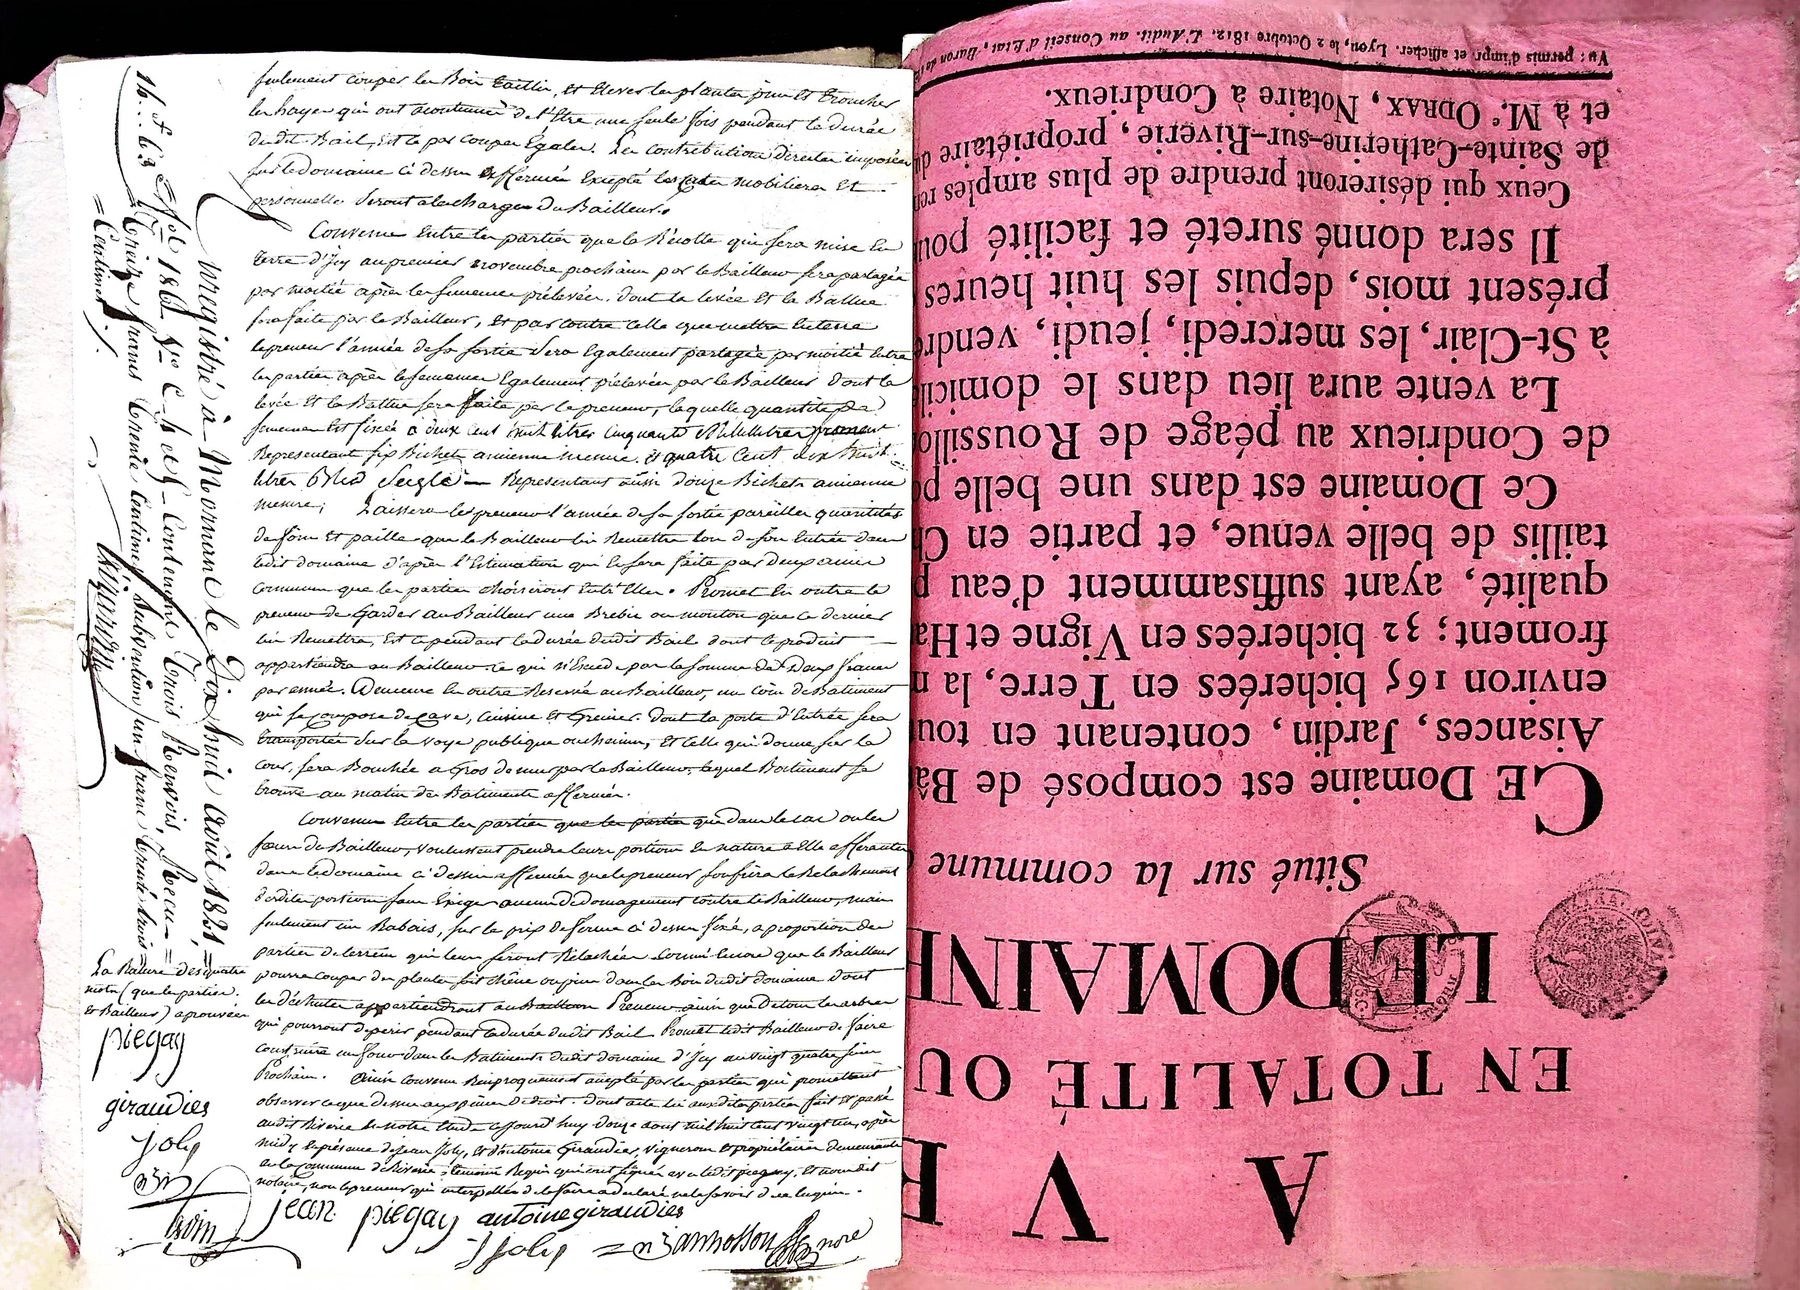 seulement couper les Bois taillis, et Elever les plantes pins et troncher
les hayes qui ont acoutumé de l'Etre une seule fois pendant la durée
dudit Bail, Et ce par coupes Egales. Les Contributions directes imposées
sur le domaine ci dessus affermée Excepté les Cotes mobilieres Et
personnelle Seront a la charge du Bailleur.
Convenu Entre les parties que la Récolte qui sera mise En
terre d'Icy au premier novembre prochain par le Bailleur sera partagée
par moitié après les semences prélevées. dont la levée Et la Battue
sera faite par le Bailleur, Et par contre celle que mettra En terre
le preneur l'année de sa sortie Sera Egalement partagée par moitié Entre
les parties après les semences Egalement prélevées par le Bailleur dont la
levée Et la Battue sera faite par le preneur, laquelle quantité de
semences Est fixée a deux cent huit litres cinquante Millilitres froment
Representant six Bichets ancienne mesure, et quatre cent dix huit
litres Bled Seigle Representant aussi douze Bichets ancienne
mesure; Laissera le preneur l'année de sa sortie pareilles quantités
de foin et paille que le Bailleur lui Remettra lors de son Entrée dans
ledit domaine d'après l'Estimation qui En sera faite par deux amis
communs que les parties choisiront Entr'Elles. Promet En outre le
preneur de Garder au Bailleur une Brebis ou mouton que ce dernier
lui Remettra, Et ce pendant la durée dudit Bail dont le produit
appartiendra au Bailleur ce qui n'Excede pas la somme de deux francs
par année. Demeure En outre Reservée au Bailleur, un coin de Batiment
qui se compose de Cave, Cuisine Et Grenier. dont la porte d'Entrée sera
transportée Sur la voye publique ou chemin, Et celle qui donne sur la
cour, sera Bouchée a Gros de mur par le Bailleur, lequel Batiment se
trouve au matin des Batiments affermés.
Convenu Entre les parties que les parties que dans le cas ou les
sœurs du Bailleur, voulussent prendre leurs portions En nature a Elles afférantes
dans le domaine ci dessus affermée que le preneur souffrira le Relachement
desdites portions sans Exiger aucun dedomagement contre le Bailleur, mais
seulement un Rabais, sur le prix de ferme ci dessus fixé, a proportion des
parties de terrein qui leur seront Relachées Convenu Encore que le Bailleur
pourra couper des plantes soit chêne ou pins dans les Bois dudit domaine dont
les déchutes appartiendront au Bailleur Preneur ainsi que de tous les arbres
qui pourront deperir pendant la durée dudit Bail. Promet ledit Bailleur de faire
Construire un four dans les Batiments dudit domaine d'Icy au vingt quatre juin
Prochain. Ainsi convenu Reciproquement accepté par les parties qui promettent
observer ce que dessus aux peines de droit. dont acte lu auxdites parties fait et passé
audit Riverie En notre Etude aujourd'huy douze aout mil huit cent vingt un, après
midy En présence de jean Joly, et d'antoine Giraudier, vigneron et propriétaire demeurants
En la Commune de Riverie témoins Requis qui ont signés avec ledit piegay, et nous dit
notaire, non le preneur qui interpellés de le faire a declaré ne le savoir de ce Enquis.
jean piegay antoine giraudier
j joly
nore
Enregistré à Mornant le Dix huit août 1821,
Contenant Trois Renvois, Reçu
Treize francs Trente Centimes, Subvention un franc trente trois
Centimes.
La Rature des quatre
mots (que les parties
Et Bailleur) aprouvée
piegay
giraudier
j joly
Vu ; permis d'impr. et afficher. Lyon, le 2 Octobre 1812. L'Audit. au Conseil d'Etat, Baron
A V
EN TOTALITÉ OU
LE DOMAINE
Situé sur la commune
CE Domaine est composé de Bâ
Aisances, Jardin, contenant en tout
environ 165 bicherées en Terre, la
froment; 32 bicherées en Vigne et Ha
qualité, ayant suffisamment d'eau
taillis de belle venue, et partie en Ch
Ce Domaine est dans une belle po
de Condrieux au péage de Roussillo
La vente aura lieu dans le domicile
à St-Clair, les mercredi, jeudi, vendre
présent mois, depuis les huit heures
Il sera donné sureté et facilité pour
Ceux qui désireront prendre de plus amples ren
de Sainte-Catherine-sur-Riverie, propriétaire du
et à Mᵉ. ODRAX, Notaire à Condrieux.